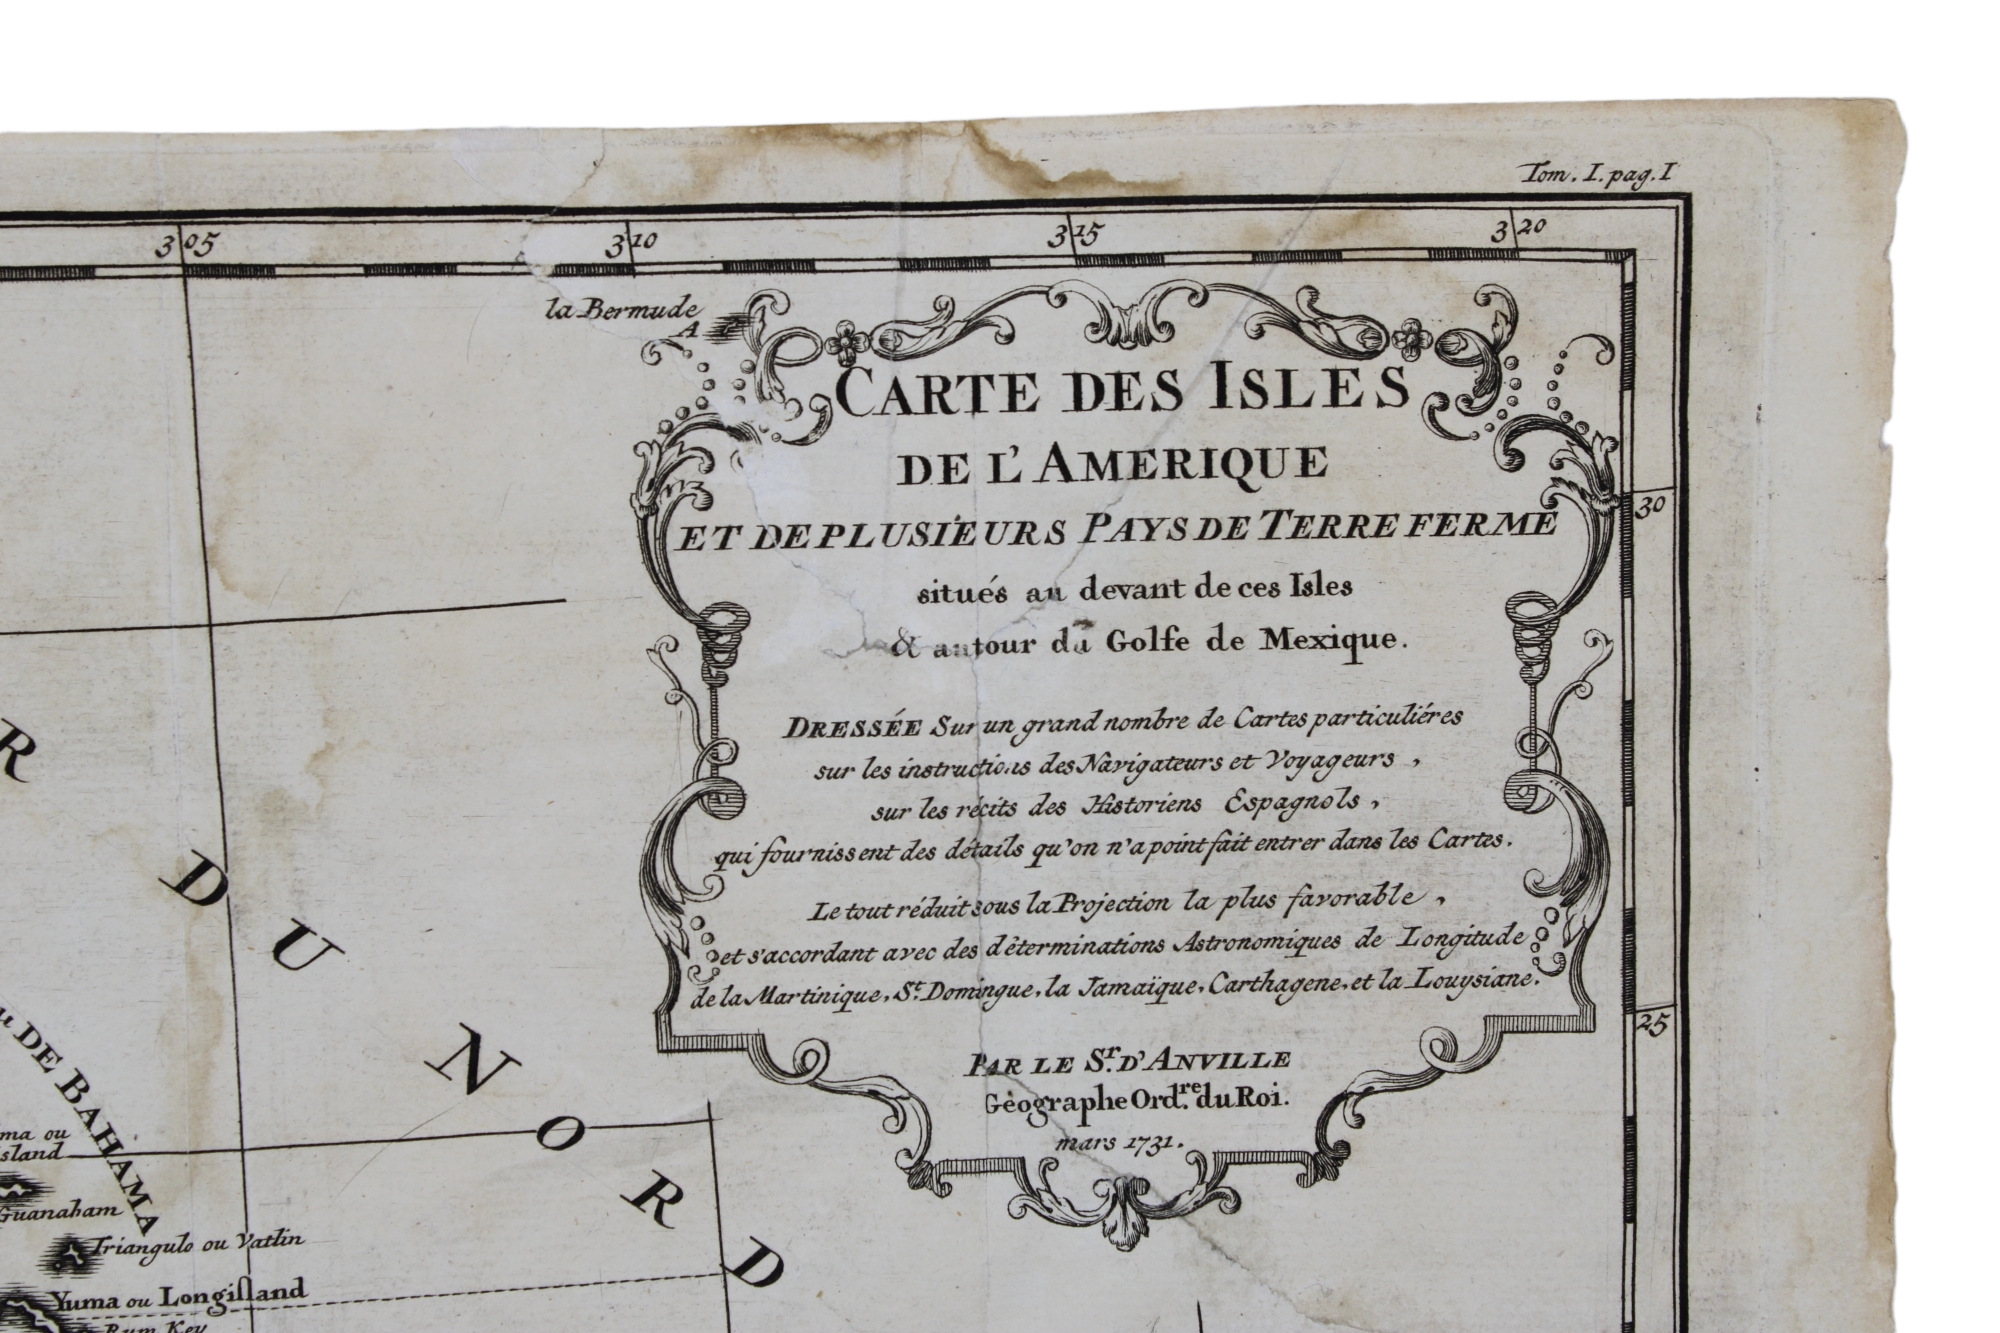 Tom. I. pag. I
305
310
315
320
la Bermude
A
CARTE DES ISLES
DE L'AMERIQUE
ET DE PLUSIEURS PAYS DE TERRE FERME
situés au devant de ces Isles
& autour du Golfe de Mexique.
DRESSÉE Sur un grand nombre de Cartes particuliéres
sur les instructions des Navigateurs et Voyageurs,
sur les récits des Historiens Espagnols,
qui fournissent des détails qu'on n'a point fait entrer dans les Cartes.
Le tout réduit sous la Projection la plus favorable,
et s'accordant avec des déterminations Astronomiques de Longitude
de la Martinique, St. Domingue, la Jamaïque, Carthagene, et la Louysiane.
PAR LE Sr. D'ANVILLE
Géographe Ord.re du Roi.
mars 1731.
30
25
R
DU
NORD
u DE BAHAMA
ma ou
sland
Guanaham
Triangulo ou Vatlin
Yuma ou Longisland
Rum Key